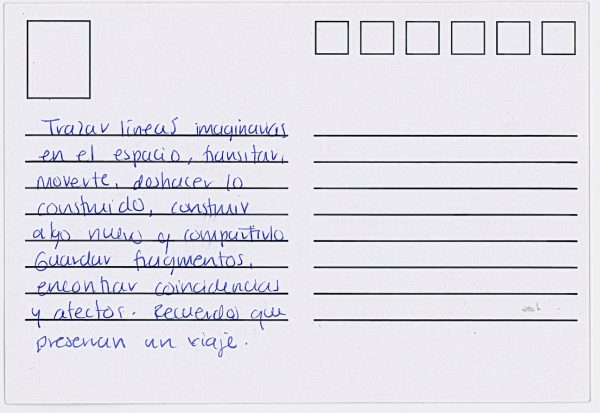 Trazar líneas imaginarias
en el espacio, transitar,
moverte, deshacer lo
construido, construir
algo nuevo y compartirlo
Guardar fragmentos,
encontrar coincidencias
y afectos. Recuerdos que
preservan un viaje.